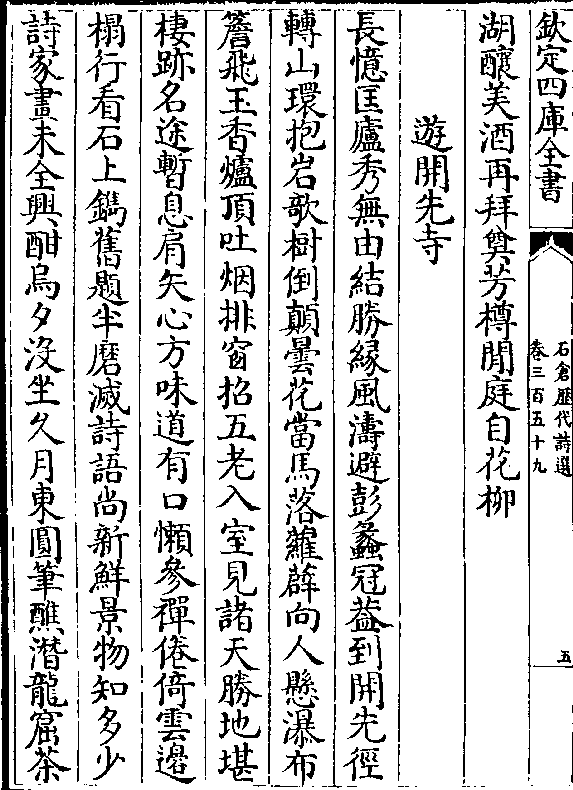 欽定四庫全書
石倉歷代詩選
卷三百五十九
五
湖釀美酒再拜奠芳樽閒庭自花柳
遊開先寺
長憶匡廬秀無由結勝緣風濤避彭蠡冠葢到開先徑
轉山環抱岩歌樹倒顛曇花當馬落蘿薜向人懸瀑布
簷飛玉香爐頂吐烟排窗招五老入室見諸天勝地堪
棲跡名途暫息肩矢心方味道有口懶參禪倦倚雲邊
榻行看石上鐫舊題半磨滅詩語尚新鮮景物知多少
詩家畫未全興酣烏夕沒坐久月東圓筆蘸潛龍窟茶